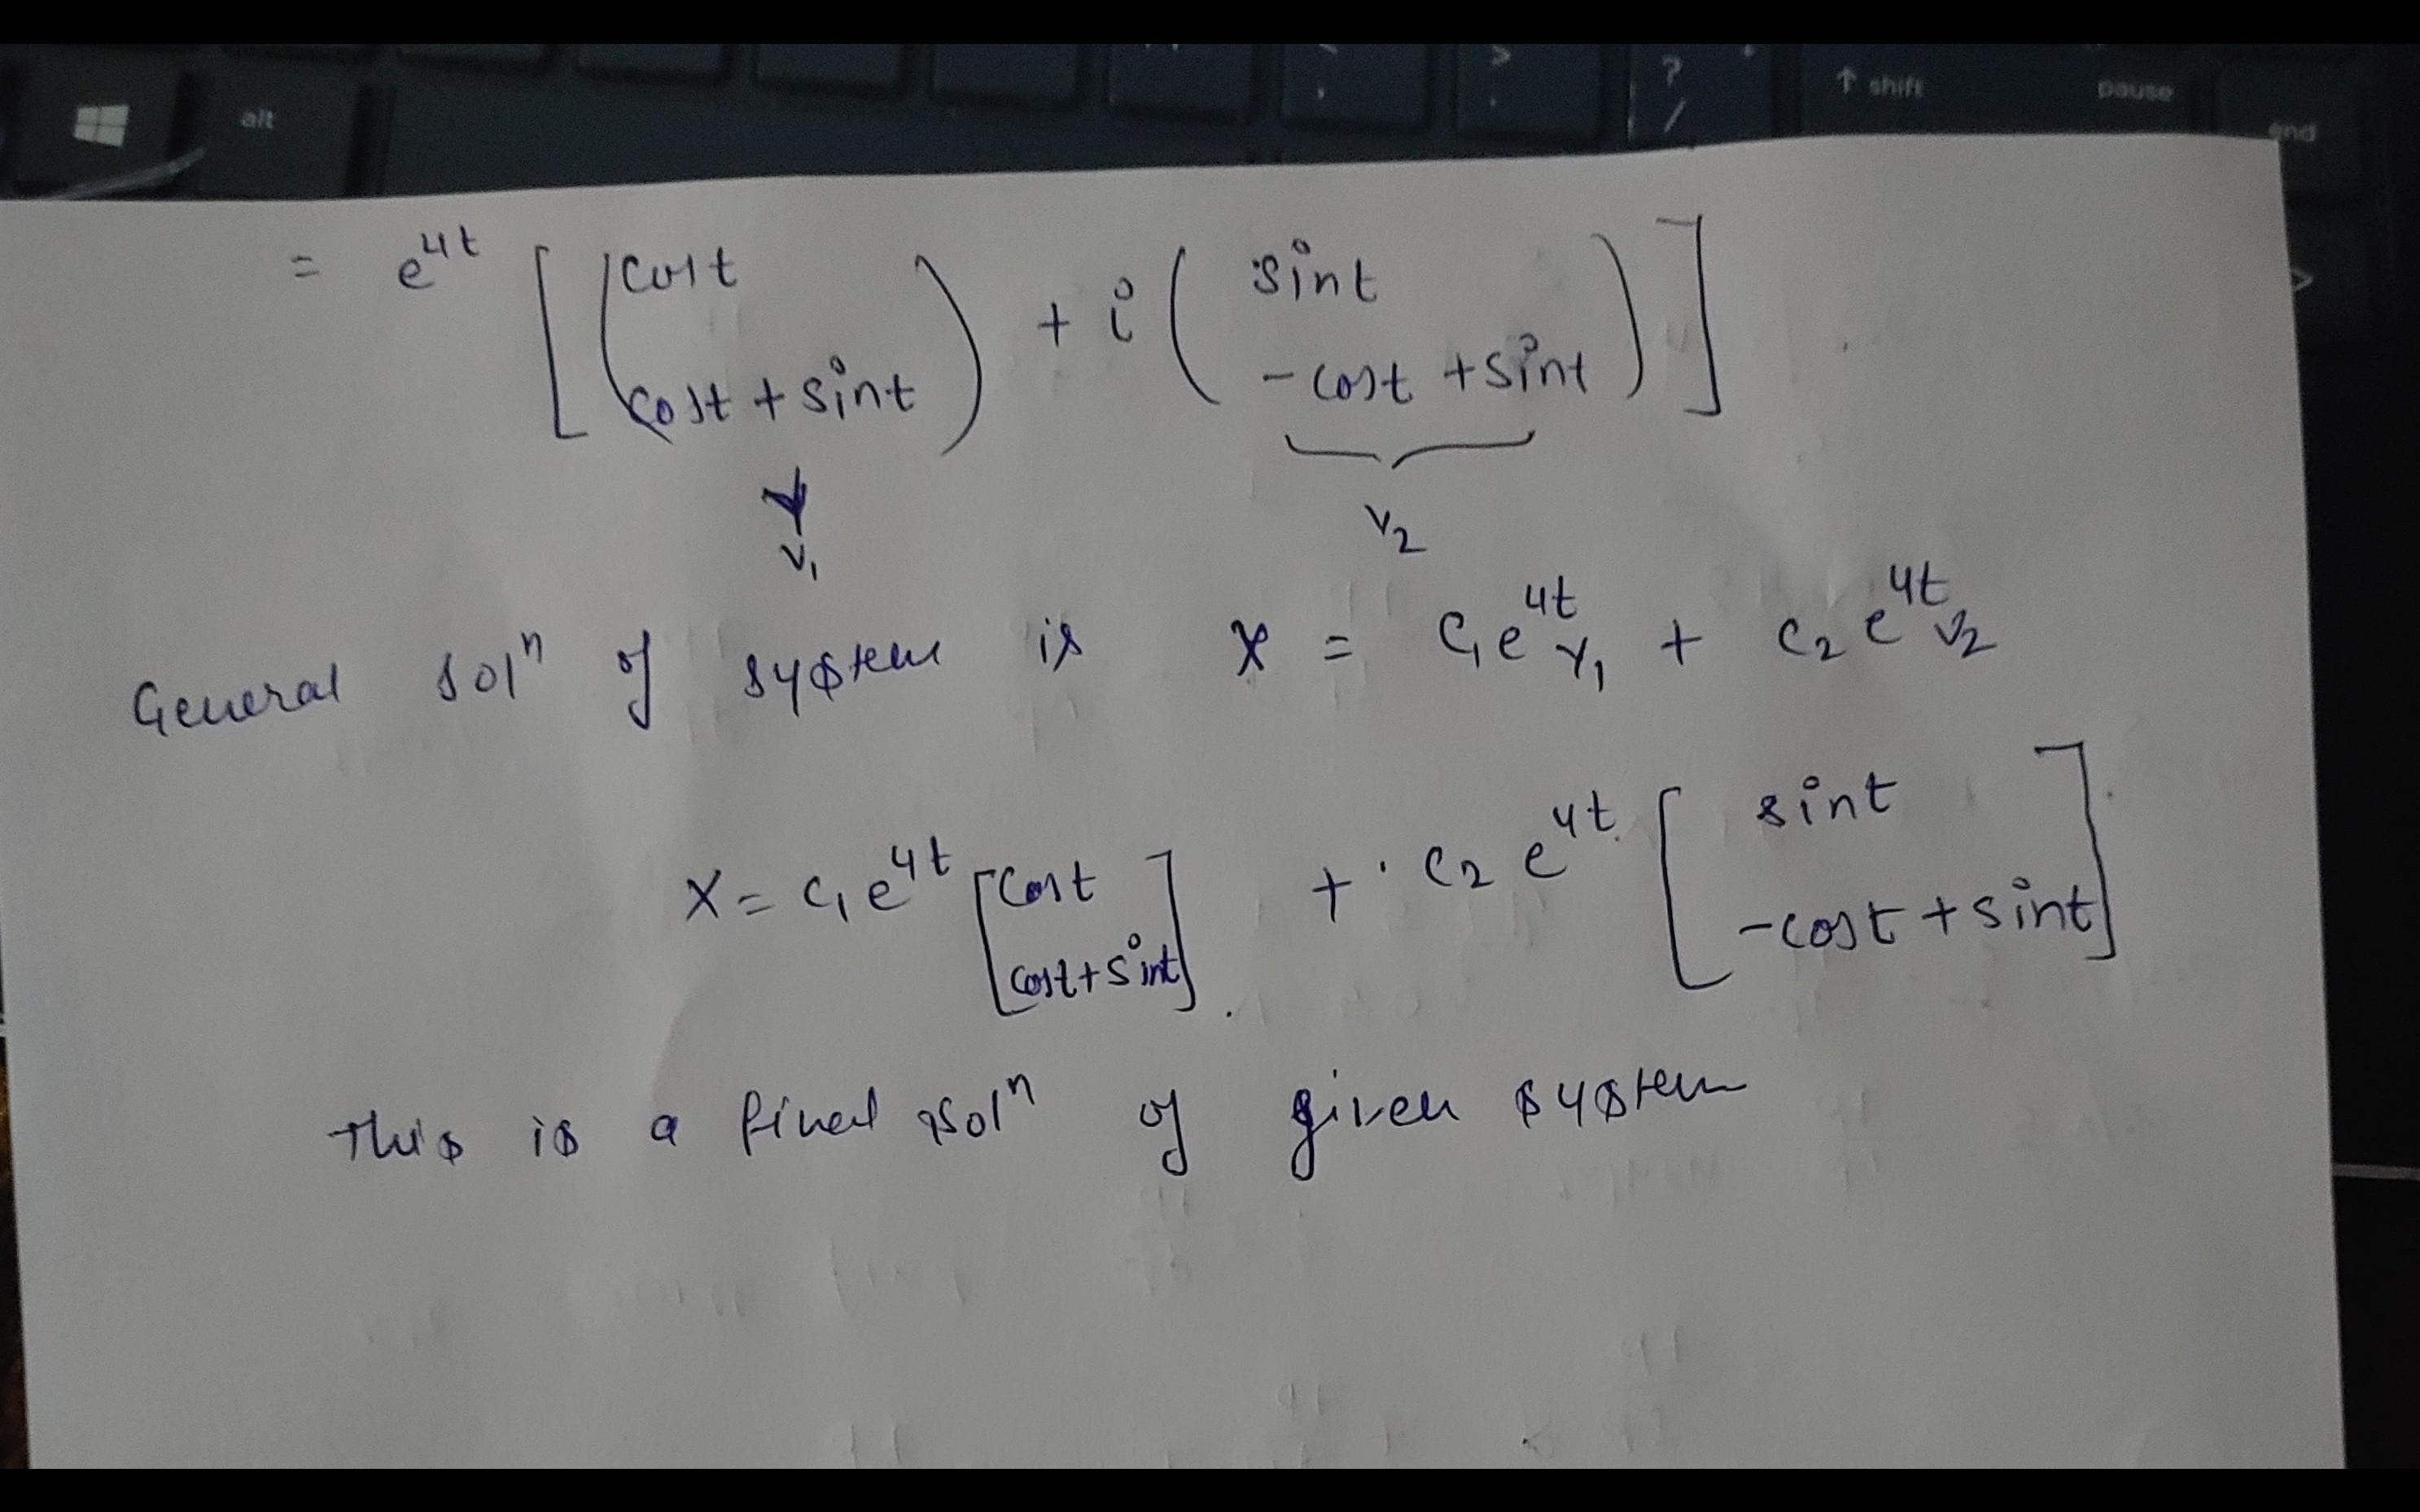 alt
?
/
↑ shift
pause
end
= e^4t [ ( cost
cost + sint ) + i ( sint
-cost + sint ) ]
v1
v2
General solⁿ of system is X = c1 e^4t v1 + c2 e^4t v2
X = c1 e^4t [ cost
cost + sint ] + c2 e^4t [ sint
-cost + sint ]
This is a final solⁿ of given system